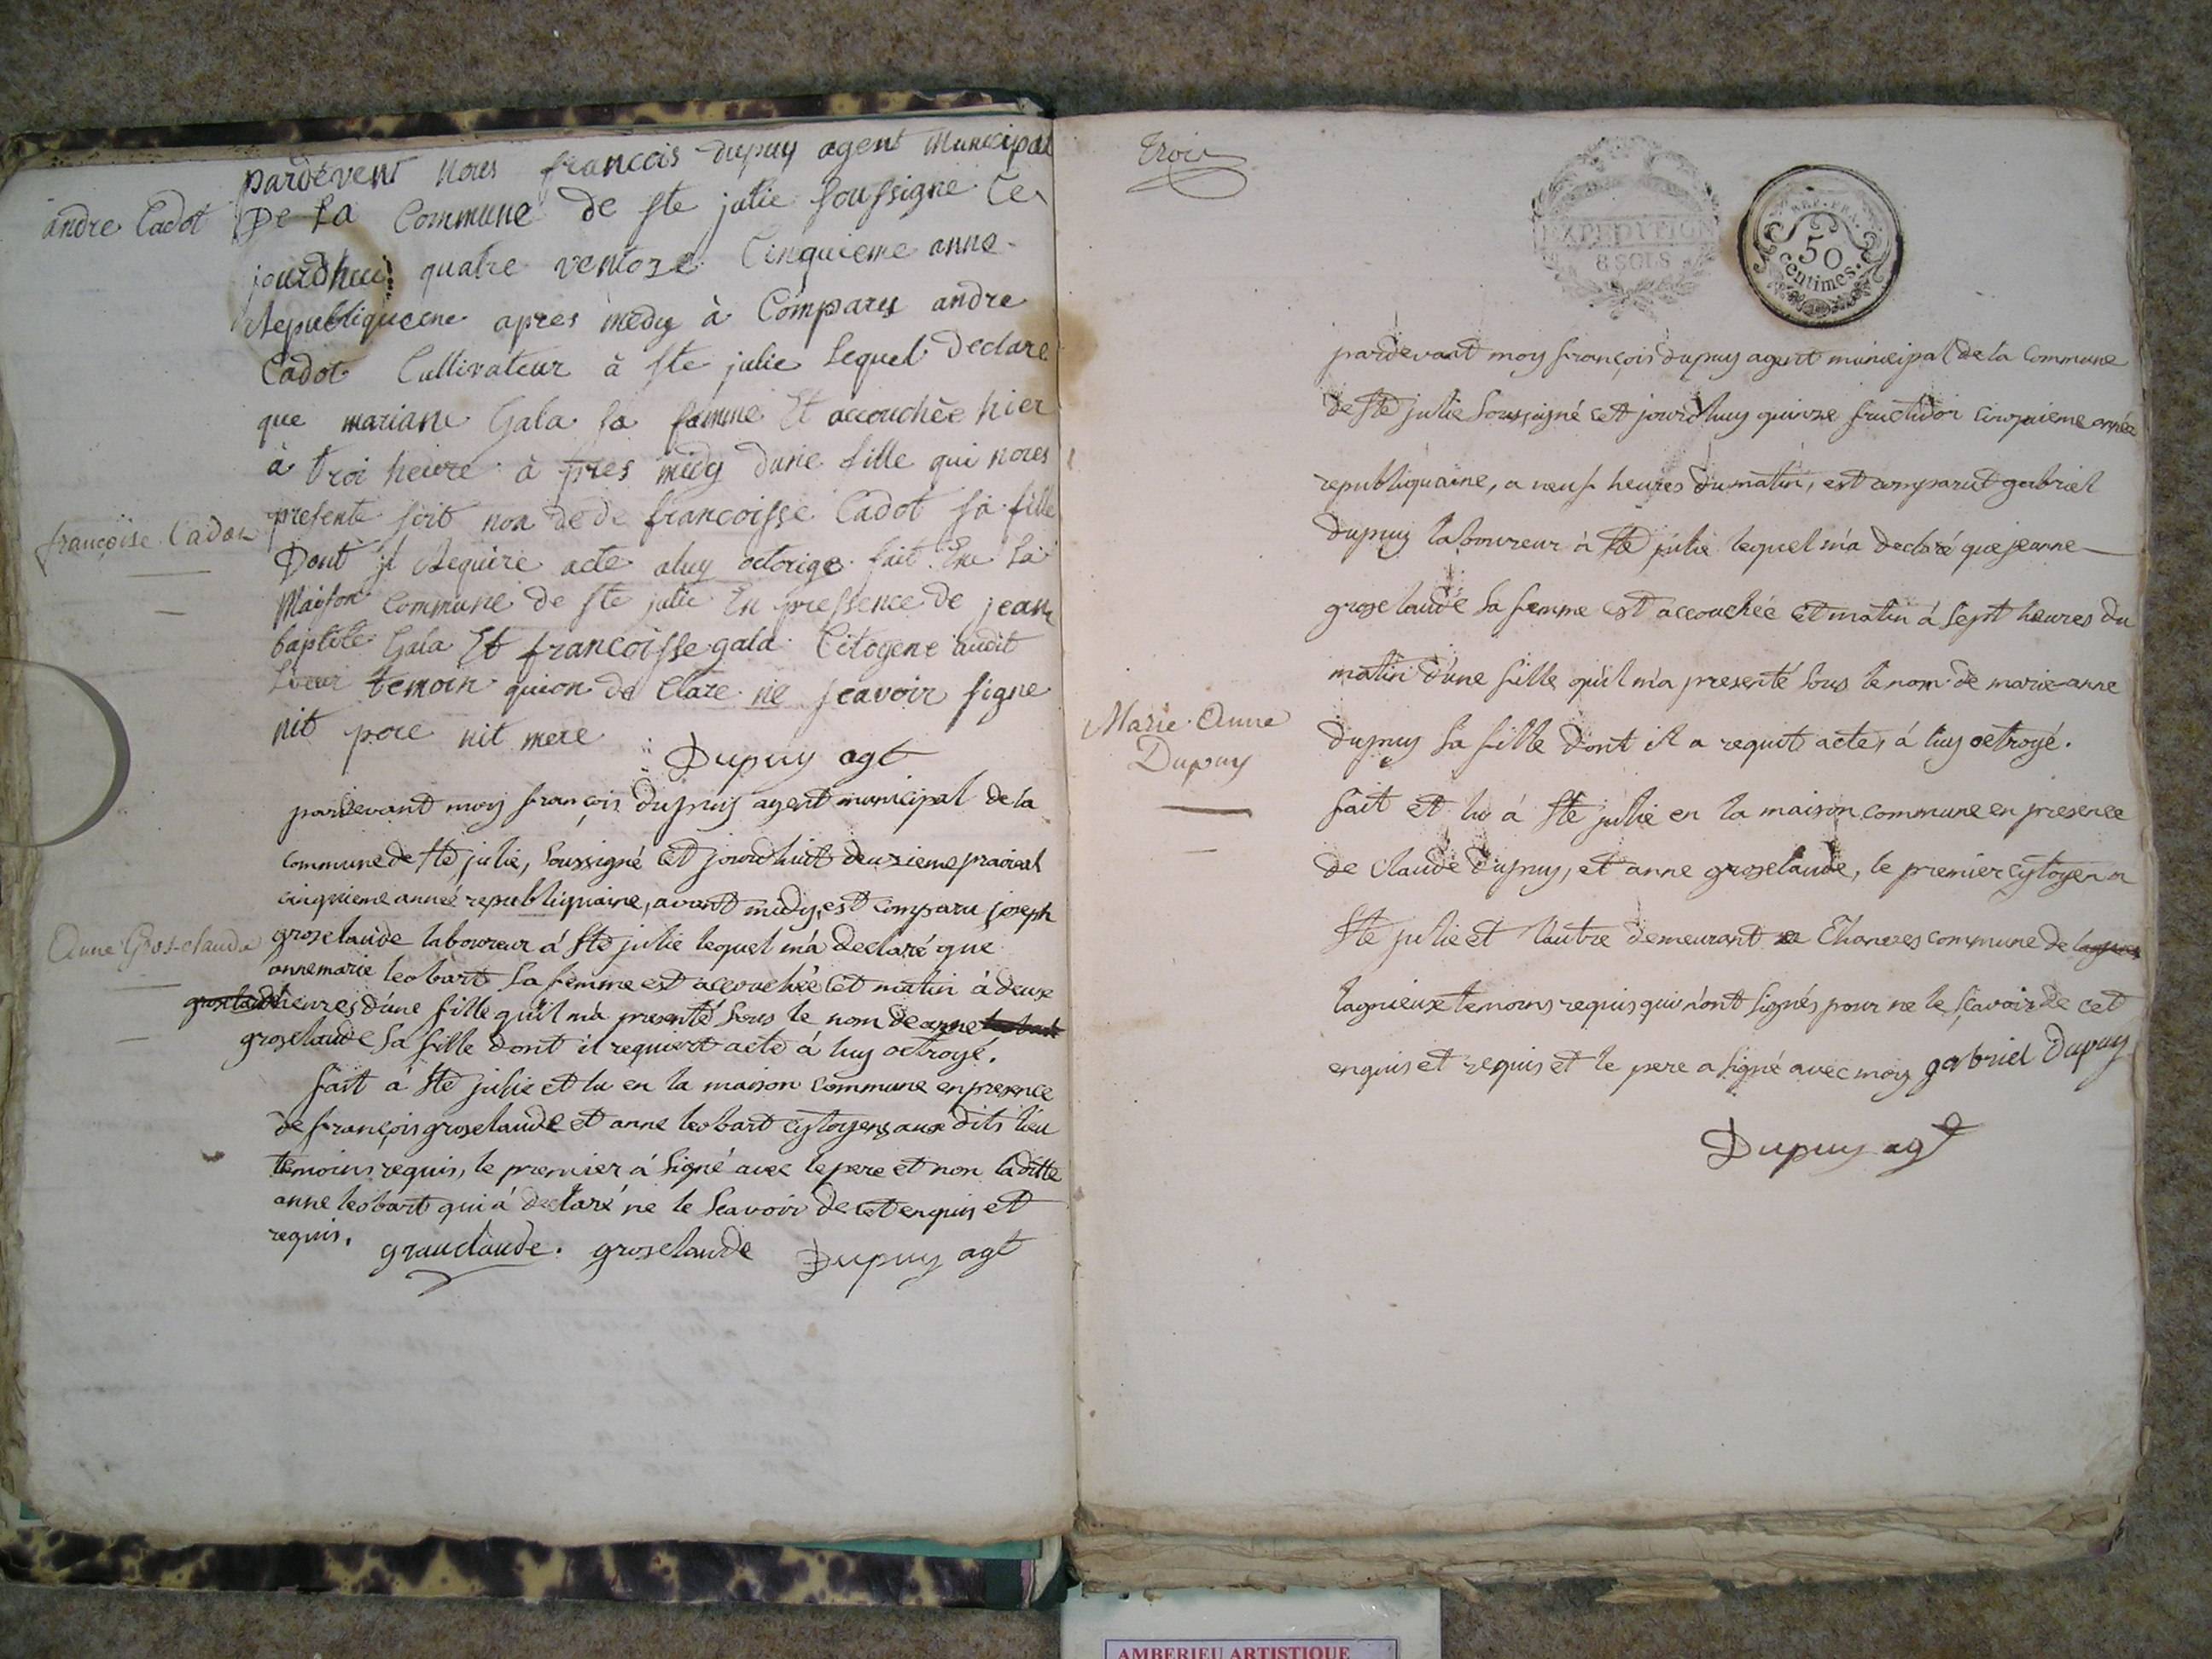 pardevent nous francois dupuy agent Municipal
andre Cadot
De La Commune de ste julie soussigne Ce
jourdhuis quatre ventose Cinquieme anne
Republiqueene apres medy à Comparu andre
Cadot Cultivateur à ste julie Lequel declare
que mariane Gala sa femme Et accouchèe hier
à troi heure à pres midy dune fille qui nous
presente soit non de de francoisse Cadot sa fille
françoise Cadot
Dont il Require acte aluy octorige fait En La
Maison Commune de ste julie En pressence de jean
baptite Gala Et francoisse gala Citoyene audit
Lieur temoin quion de Clare ne scavoir signe
nit pere nit mere
Dupuy agt
pardevant moy françois dupuy agent municipal de la
commune de ste julie, soussigné cet jourdhuit deuxieme prairial
cinquieme anneé republiquaine, avant midy, est comparu joseph
Anne Gros-claude
grosclaude laboureur á Ste julie lequel m'a declaré que
annemarie leobart sa femme est accouchée cet matin à deux
grosclaude heures d'une fille qu'il m'a presenté sous le nom de anne leobart
grosclaude sa fille dont il requiert acte á luy octroyé.
fait á Ste julie et lu en la maison commune en presence
de françois grosclaude et anne leobart cytoyens aux dits lieu
temoins requis, le premier á signé avec le pere et non la ditte
anne leobart qui á declaré ne le scavoir de cet enquis et
requis. grauclaude. grosclaude Dupuy agt
Trois
EXPEDITION
8 SOLS
REP. FRA.
50
centimes.
pardevant moy françois dupuy agent municipal de la commune
de Ste julie soussigné cet jourd'huy quinze fructidor cinquieme année
republiquaine, a neuf heures du matin, est comparut gabriel
dupuy laboureur á Ste julie lequel m'a declaré que jeanne
grosclaude sa femme est accouchée cet matin á sept heures du
matin d'une fille qu'il m'a presenté sous le nom de marie anne
Marie Anne
Dupuy
dupuy sa fille dont il a requit acte, á luy octroyé.
fait et lu á Ste julie en la maison commune en presence
de Claude dupuy, et anne grosclaude, le premier cytoyen a
Ste julie et l'autre demeurant a Chanves commune de lagnieu
lagnieux temoins requis qui n'ont signés pour ne le sçavoir de cet
enquis et requis et le pere a signé avec moy gabriel Dupuy
Dupuy agt
AMBERIEU ARTISTIQUE